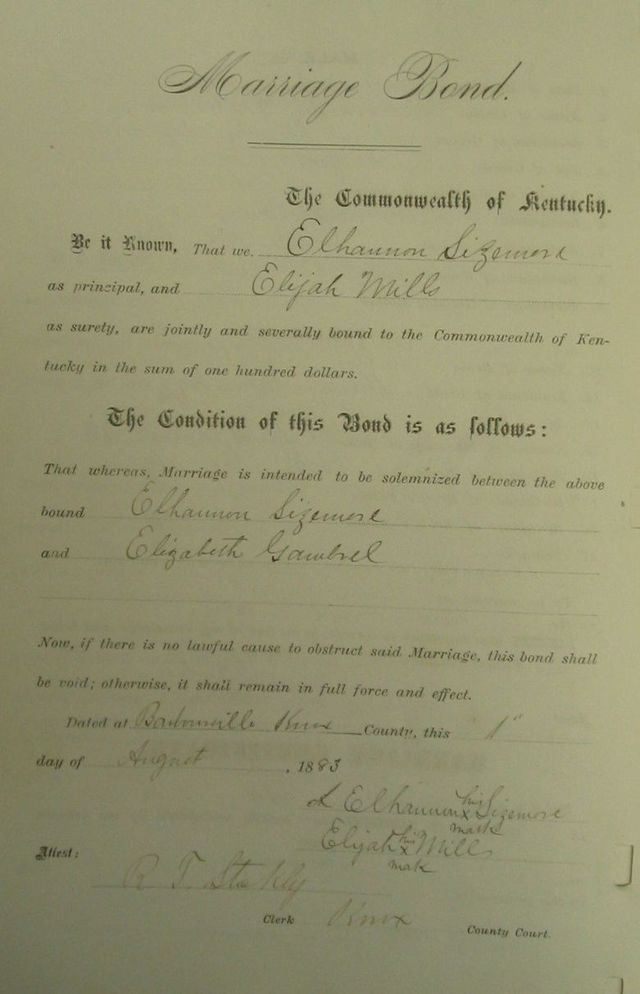 Marriage Bond.
The Commonwealth of Kentucky.
Be it Known, That we, Elhannon Sizemore
as principal, and Elijah Mills
as surety, are jointly and severally bound to the Commonwealth of Ken-
tucky in the sum of one hundred dollars.
The Condition of this Bond is as follows:
That whereas, Marriage is intended to be solemnized between the above
bound Elhannon Sizemore
and Elizabeth Gambrel
Now, if there is no lawful cause to obstruct said Marriage, this bond shall
be void; otherwise, it shall remain in full force and effect.
Dated at Barbourville Knox County, this 1"
day of August, 1883
Elhannon his x mark Sizemore
Elijah his x mark Mills
Attest:
R T
Clerk Knox County Court.